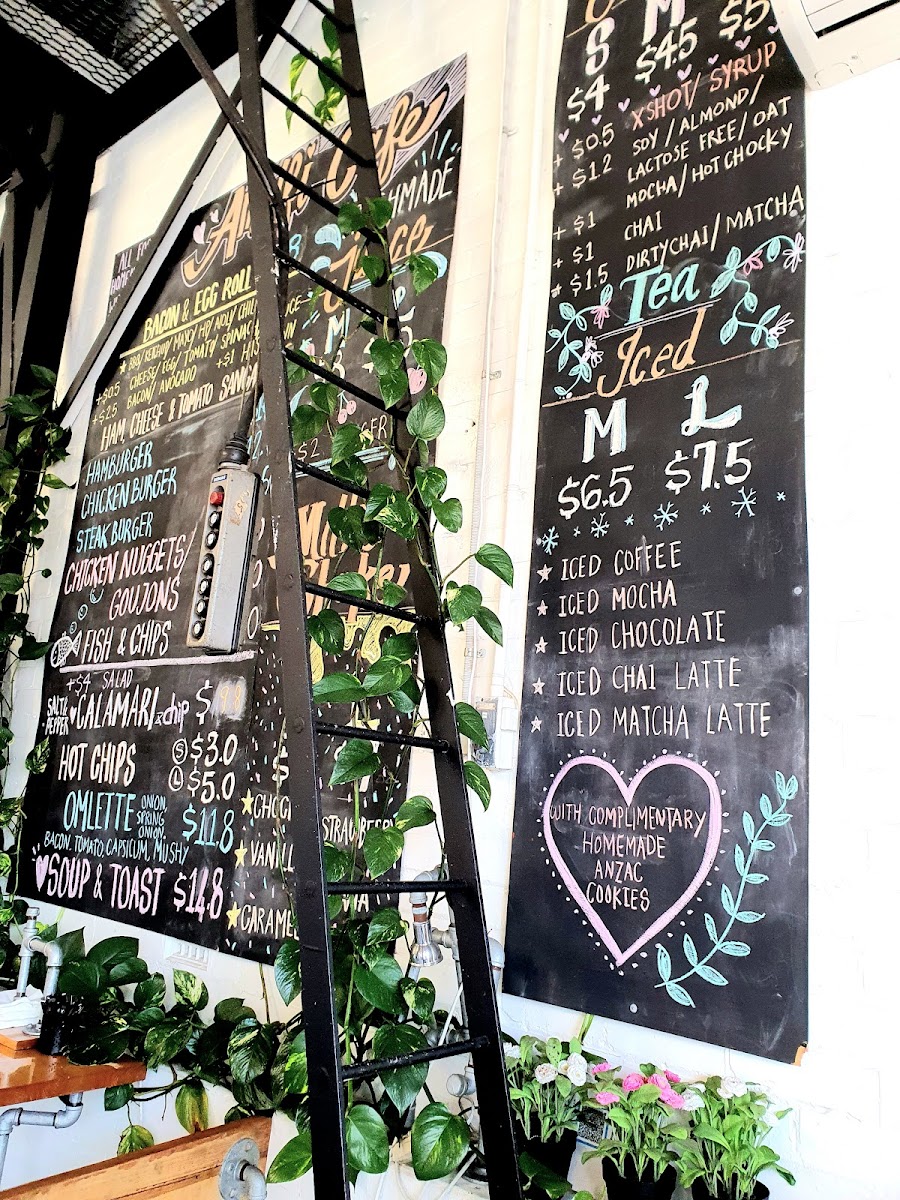 Cafe
HMADE
Juice
ALL
BACON & EGG ROLL
BBQ/KETCHUP/MAYO/HP/AIOLI/
+$0.5 CHEESE/EGG/TOMATO/SPINAC
+$2.5 BACON/AVOCADO +$1
HAM, CHEESE & TOMATO
HAMBURGER
CHICKEN BURGER
STEAK BURGER
CHICKEN NUGGETS/
GOUJONS
FISH & CHIPS
+$4 SALAD
SALT &
PEPPER CALAMARI & chip
HOT CHIPS S $3.0
L $5.0
OMLETTE ONION, SPRING ONION, $11.8
BACON, TOMATO, CAPSICUM, MUSHY
SOUP & TOAST $14.8
$2
STRAWBERRY
VANILL
CARAME
S M
$4 $4.5 $5
+ $0.5 XSHOT/SYRUP
+ $1.2 SOY/ALMOND/
LACTOSE FREE/OAT
+ $1 MOCHA/HOT CHOCKY
+ $1 CHAI
$1.5 DIRTY CHAI/MATCHA
Tea
Iced
M L
$6.5 $7.5
ICED COFFEE
ICED MOCHA
ICED CHOCOLATE
ICED CHAI LATTE
ICED MATCHA LATTE
WITH COMPLIMENTARY
HOMEMADE
ANZAC
COOKIES